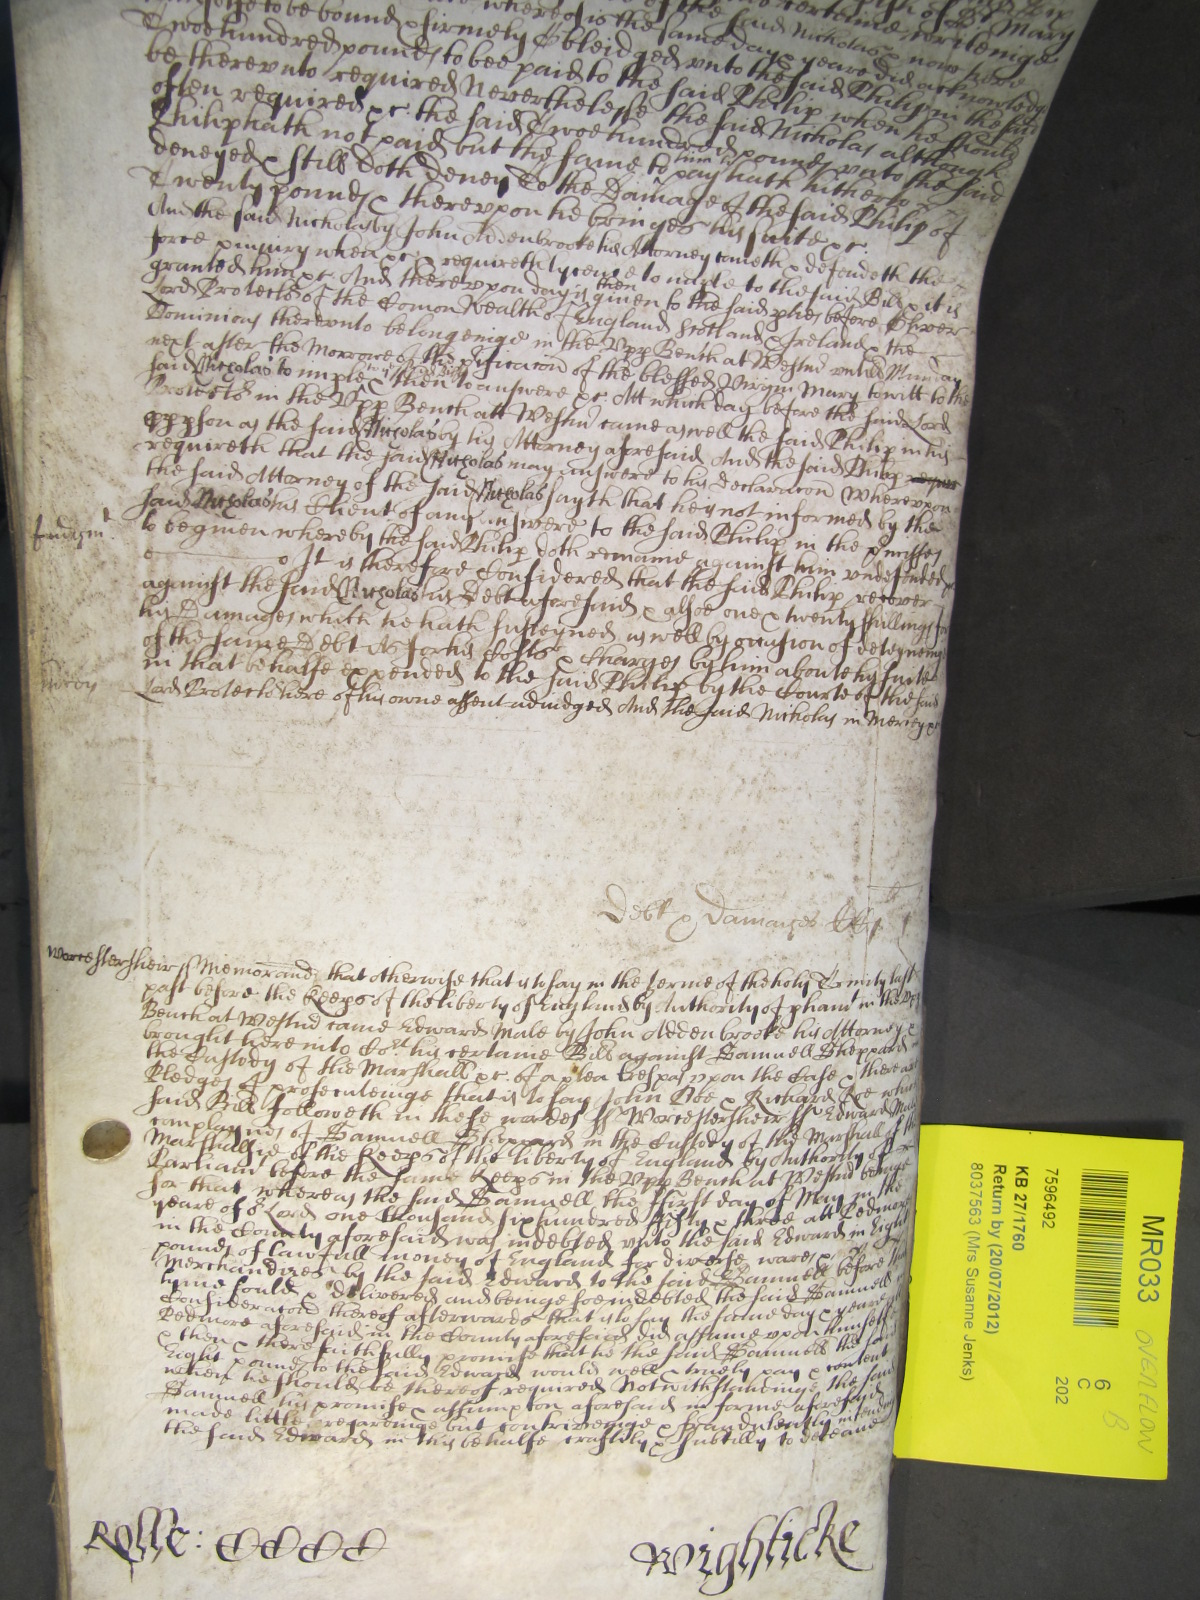 Twoe hundred pounds to bee paid to the said Philip when he should
be therevnto required Neverthelesse the said Nicholas although
often required &c. the said Twoe hundred pounds vnto the said
Philip hath not paid but the same to him to pay hath hitherto
deneyed & still doth deney To the Damage of the said Philip of
Twenty pounds & therevpon he bringes his suite &c.
And the said Nicholas by John Addenbrooke his Attorney cometh & defendeth the
force & iniury when &c & requireth lycence to imple to the said Bill & it is
granted him &c. And therevpon day is then given to the said pties before Oliver
Lord Protector of the Comon Wealth of England Scotland & Ireland & the
Dominions therevnto belonginge in the Vpp Bench at Westmr vntill Munday
next after the Morrowe of the purificacon of the blessed Virgin Mary to witt to the
said Nicholas to imple & then to answere &c. Att which day before the said Lord
Protector in the Vpp Bench att Westmr came aswell the said Philip in his
ppson as the said Nicholas by his Attorney aforesaid And the said Philip
requireth that the said Nicholas may answere to his declaracon Wherevpon
the said Attorney of the said Nicholas sayth that he is not informed by the
said Nicholas his Client of any answere to the said Philip in the pmisses
to be given whereby the said Philip doth remaine against him vndefended
Iudgmt
It is therefore Considered that the said Philip recover
against the said Nicholas his Debt aforesaid & alsoe one & twenty shillings for
his Damages which he hath susteyned aswell by occasion of deteyneing
of the same Debt As for his Costs & Charges by him about his suite
in that behalfe expended to the said Philip by the Courte of the said
mercy
Lord Protector here of his owne assent adiudged And the said Nicholas in Mercy &c
Debt & Damages
Worcestersheir ss Memorand that otherwise that is to say in the terme of the holy Trinity last
past before the Keeps of the liberty of England by Authority of pliamt in the Vpp
Bench at Westmr came Edward Male by John Addenbrooke his Attorney &
brought here into Cort his certaine Bill against Samuell Sheppard in
the Custody of the Marshall &c. of a plea trespas vpon the Case & there are
Pledges of prosecuteinge that is to say John Doe & Richard Roe which
said Bill followeth in these wordes ss Worcestersheir ss Edward Male
complaynes of Samuell Sheppard in the Custody of the Marshall of the
Marshallsie of the Keeps of the liberty of England by Authority of
Parliamt before the same Keeps in the Vpp Bench at Westmr beinge
for that whereas the said Samuell the first day of May in the
yeare of or Lord one thousand six hundred fifty & three att Pedmore
in the County aforesaid was indebted vnto the said Edward in Eight
pounds of lawfull money of England for diverse wares &
Merchandizes by the said Edward to the said Samuell before that
tyme sould & delivered and beinge soe indebted the said Samuell in
Consideracon thereof afterwards that is to say the same day & yeare att
Pedmore aforesaid in the County aforesaid did assume vpon himselfe
& then & there faithfully promise that he the said Samuell the said
Eight pounds to the said Edward would well & truely pay & content
when he should be thereof required Notwithstandinge the said
Samuell his promise & assumpcon aforesaid in forme aforesaid
made little regardinge but contriveinge & fraudulently intendinge
the said Edward in this behalfe craftily & subtilly to deceave
Rolle:
Wightwicke
MR033
OVERFLOW
B
6
C
202
7596492
KB 27/1760
Return by (20/07/2012)
8037563 (Mrs Susanne Jenks)